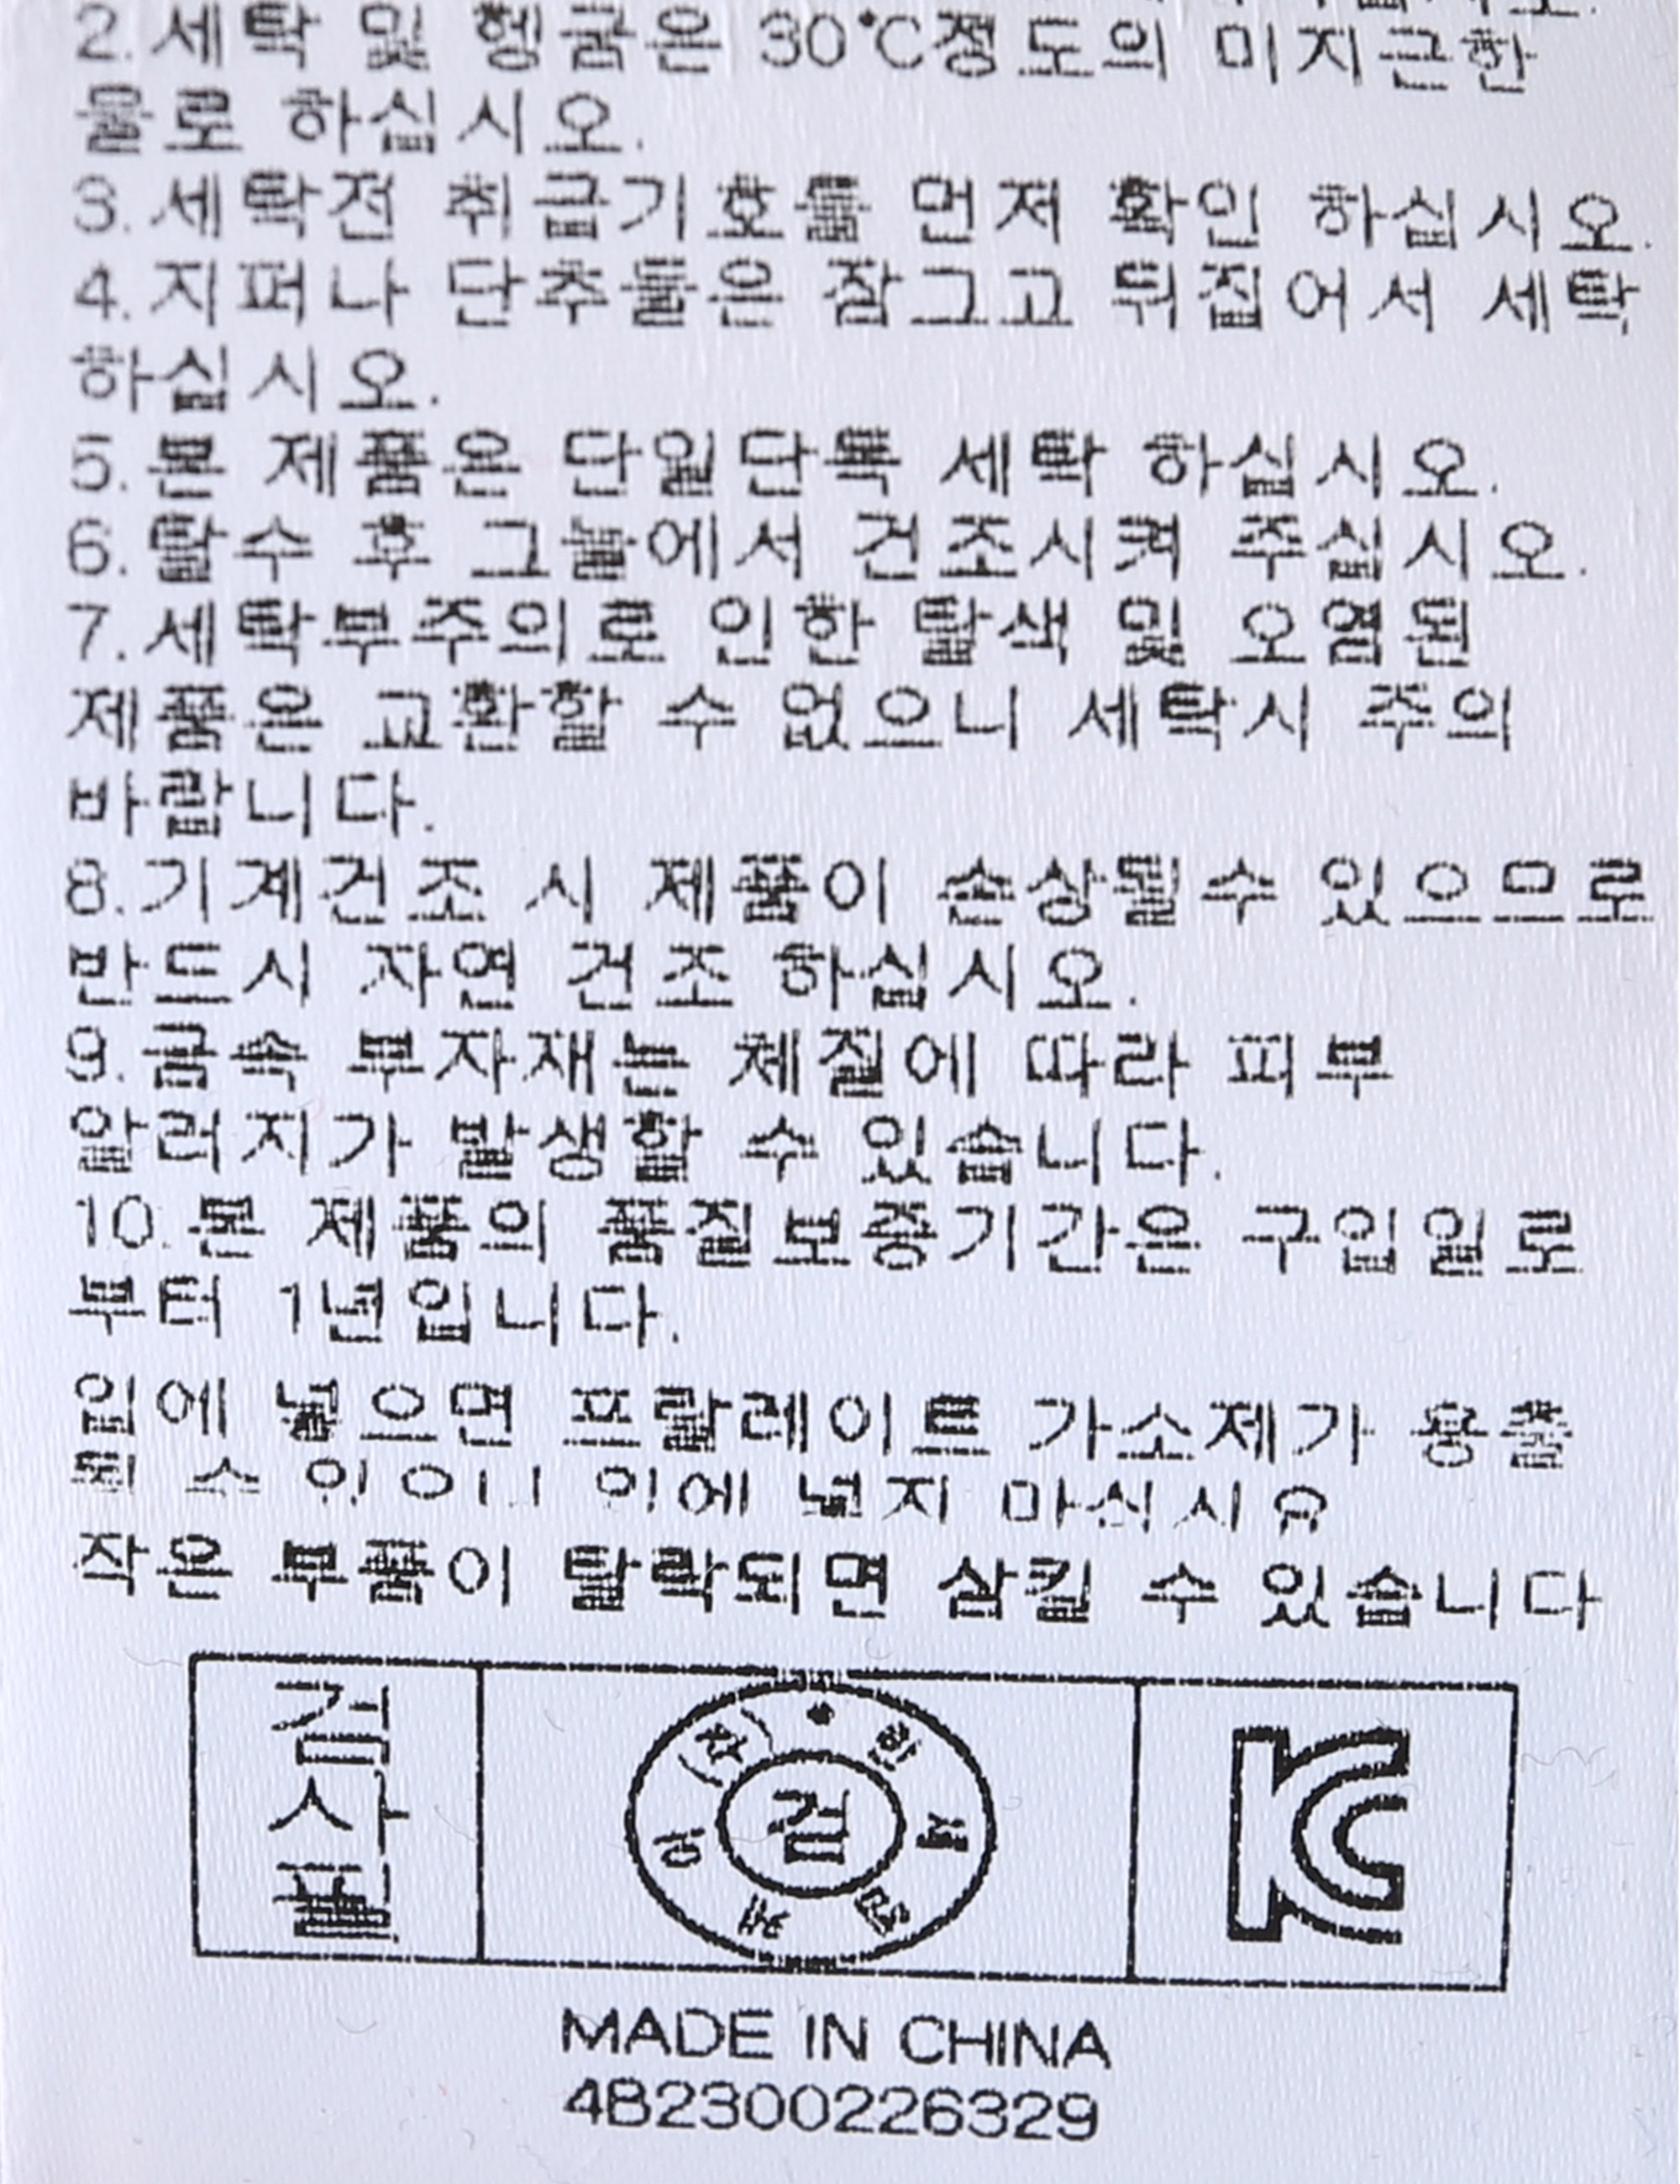 2.세탁 및 헹굼은 30℃정도의 미지근한
물로 하십시오.
3.세탁전 취급기호를 먼저 확인 하십시오.
4.지퍼나 단추들은 잠그고 뒤집어서 세탁
하십시오.
5.본 제품은 단일단독 세탁 하십시오.
6.탈수 후 그늘에서 건조시켜 주십시오.
7.세탁부주의로 인한 탈색 및 오염된
제품은 교환할 수 없으니 세탁시 주의
바랍니다.
8.기계건조 시 제품이 손상될수 있으므로
반드시 자연 건조 하십시오.
9.금속 부자재는 체질에 따라 피부
알러지가 발생할 수 있습니다.
10.본 제품의 품질보증기간은 구입일로
부터 1년입니다.
입에 넣으면 프탈레이트 가소제가 용출
될 수 있으니 입에 넣지 마십시요
작은 부품이 탈락되면 삼킬 수 있습니다
검사필
검
KC
MADE IN CHINA
4B2300226329